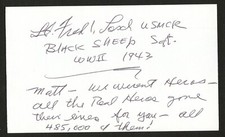 Lt. Fred L. USMCR
BLACK SHEEP Sqt.
WWII 1943
Matt – We weren't Heros –
all the Real Heros gave
their lives for you – all
485,000 of them!